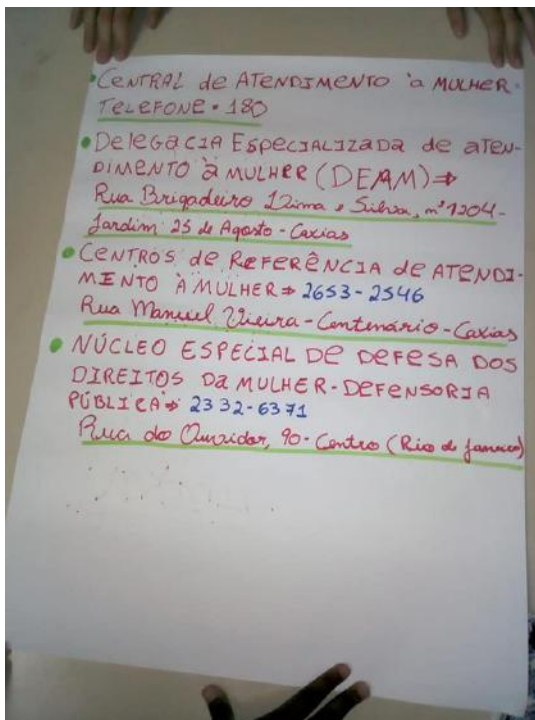 • CENTRAL de ATENDIMENTO à MULHER.
TELEFONE • 180
• DELEGACIA ESPECIALIZADA de ATEN-
DIMENTO à MULHER (DEAM) ⇒
Rua Brigadeiro Lima e Silva, nº 1204 -
Jardim 25 de Agosto - Caxias
• CENTROS de REFERÊNCIA de ATENDI-
MENTO À MULHER ⇒ 2653-2546
Rua Manuel Vieira - Centenário - Caxias
• NÚCLEO ESPECIAL DE DEFESA DOS
DIREITOS DA MULHER - DEFENSORIA
PÚBLICA ⇒ 2332-6371
Rua do Ouvidor, 90 - Centro (Rio de Janeiro)